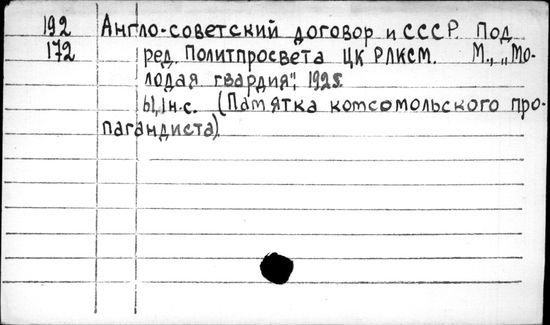 192 Англо-советский договор и СССР. Под
172 ред. Политпросвета ЦК РЛКСМ. М., „Мо-
лодая гвардия", 1925.
(Памятка комсомольского про-
пагандиста).